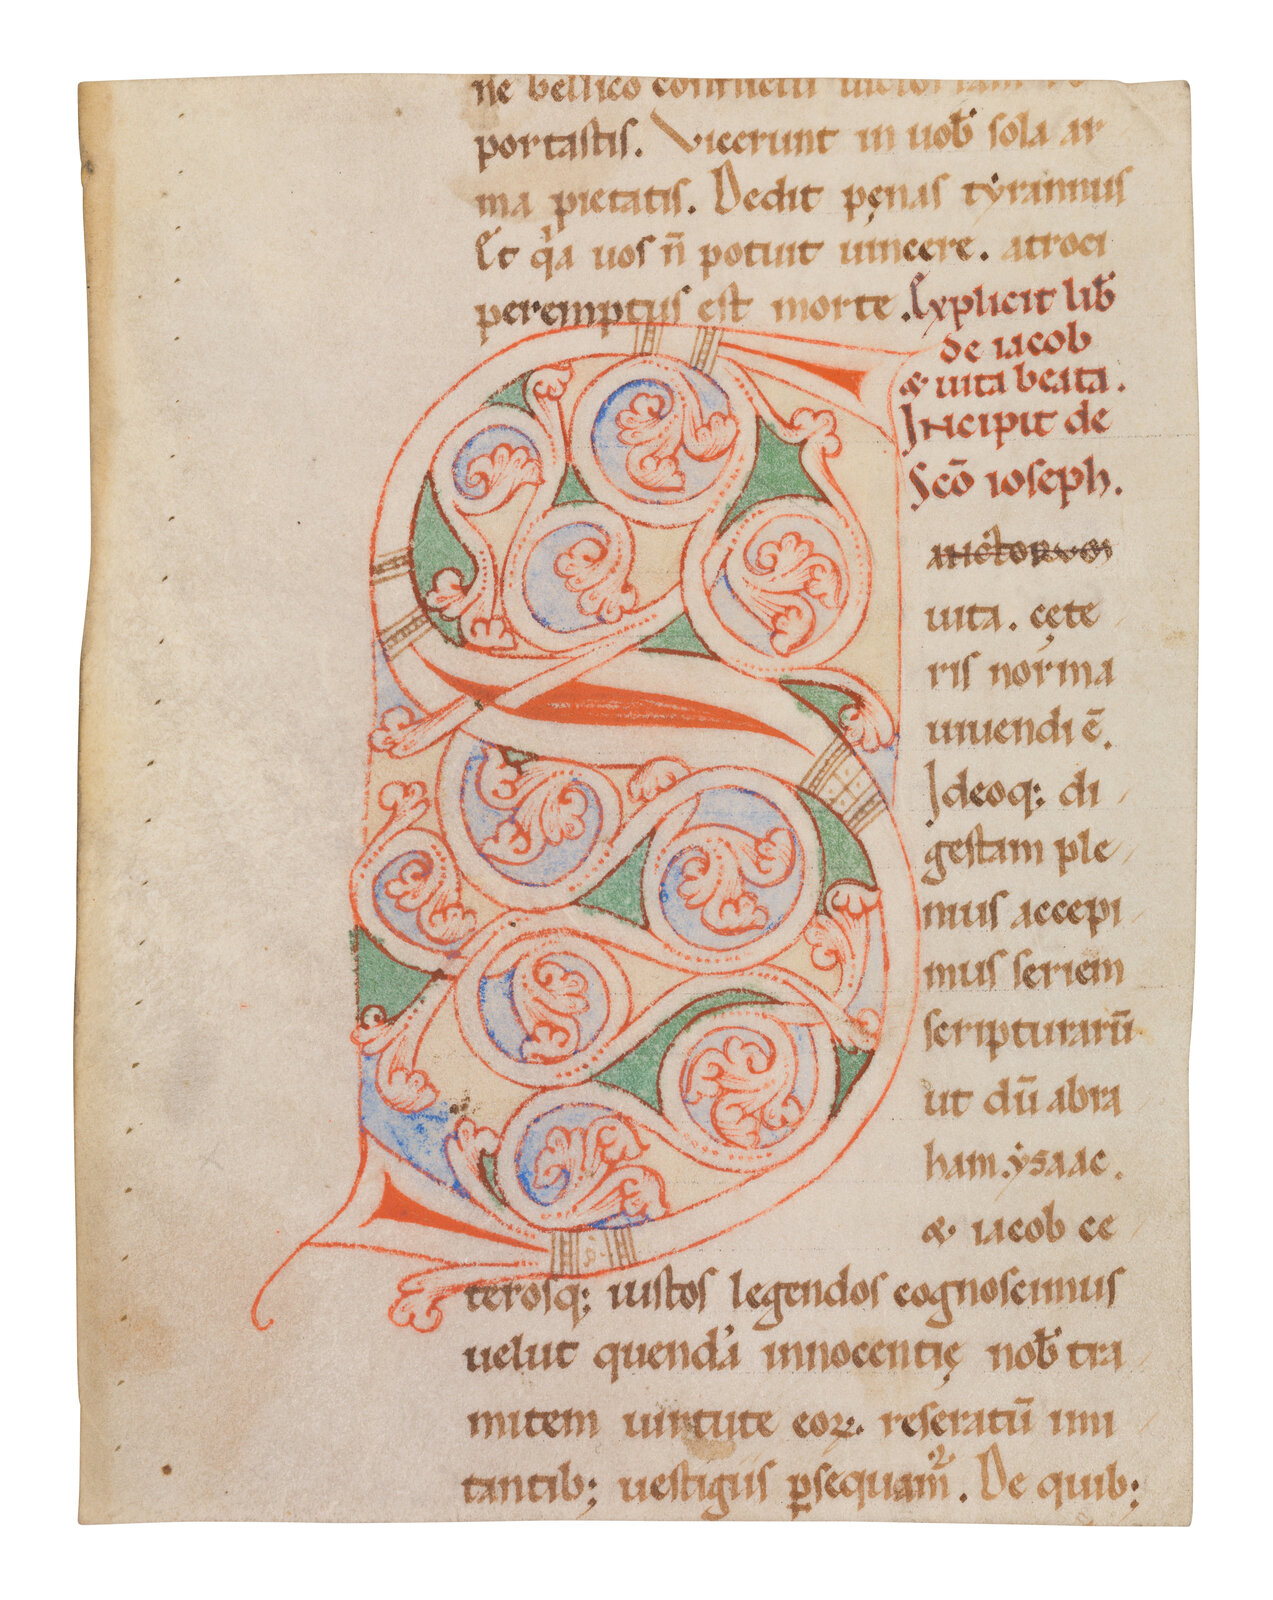 ne bellico conflictu uictoriam re
portastis. Vicerunt in uob̄ sola ar
ma pietatis. Dedit pęnas tyrannus
Et q̇a uos n̄ potuit uincere. atroci
peremptus est morte. Explicit lib̄
de iacob
& uita beata.
Incipit de
Sc̄o ioseph.
anctorum
uita. cęte
ris norma
uiuendi ē.
Ideoq; di
gestam ple
nius accepi
mus seriem
scripturarū
ut dū abra
ham. ysaac.
& iacob ce
terosq; iustos legendos cognoscimus
uelut quendā innocentię nob̄ tra
mitem uirtute eoꝝ. reseratū imi
tantib; uestigiis ꝑsequam̃. De quib;